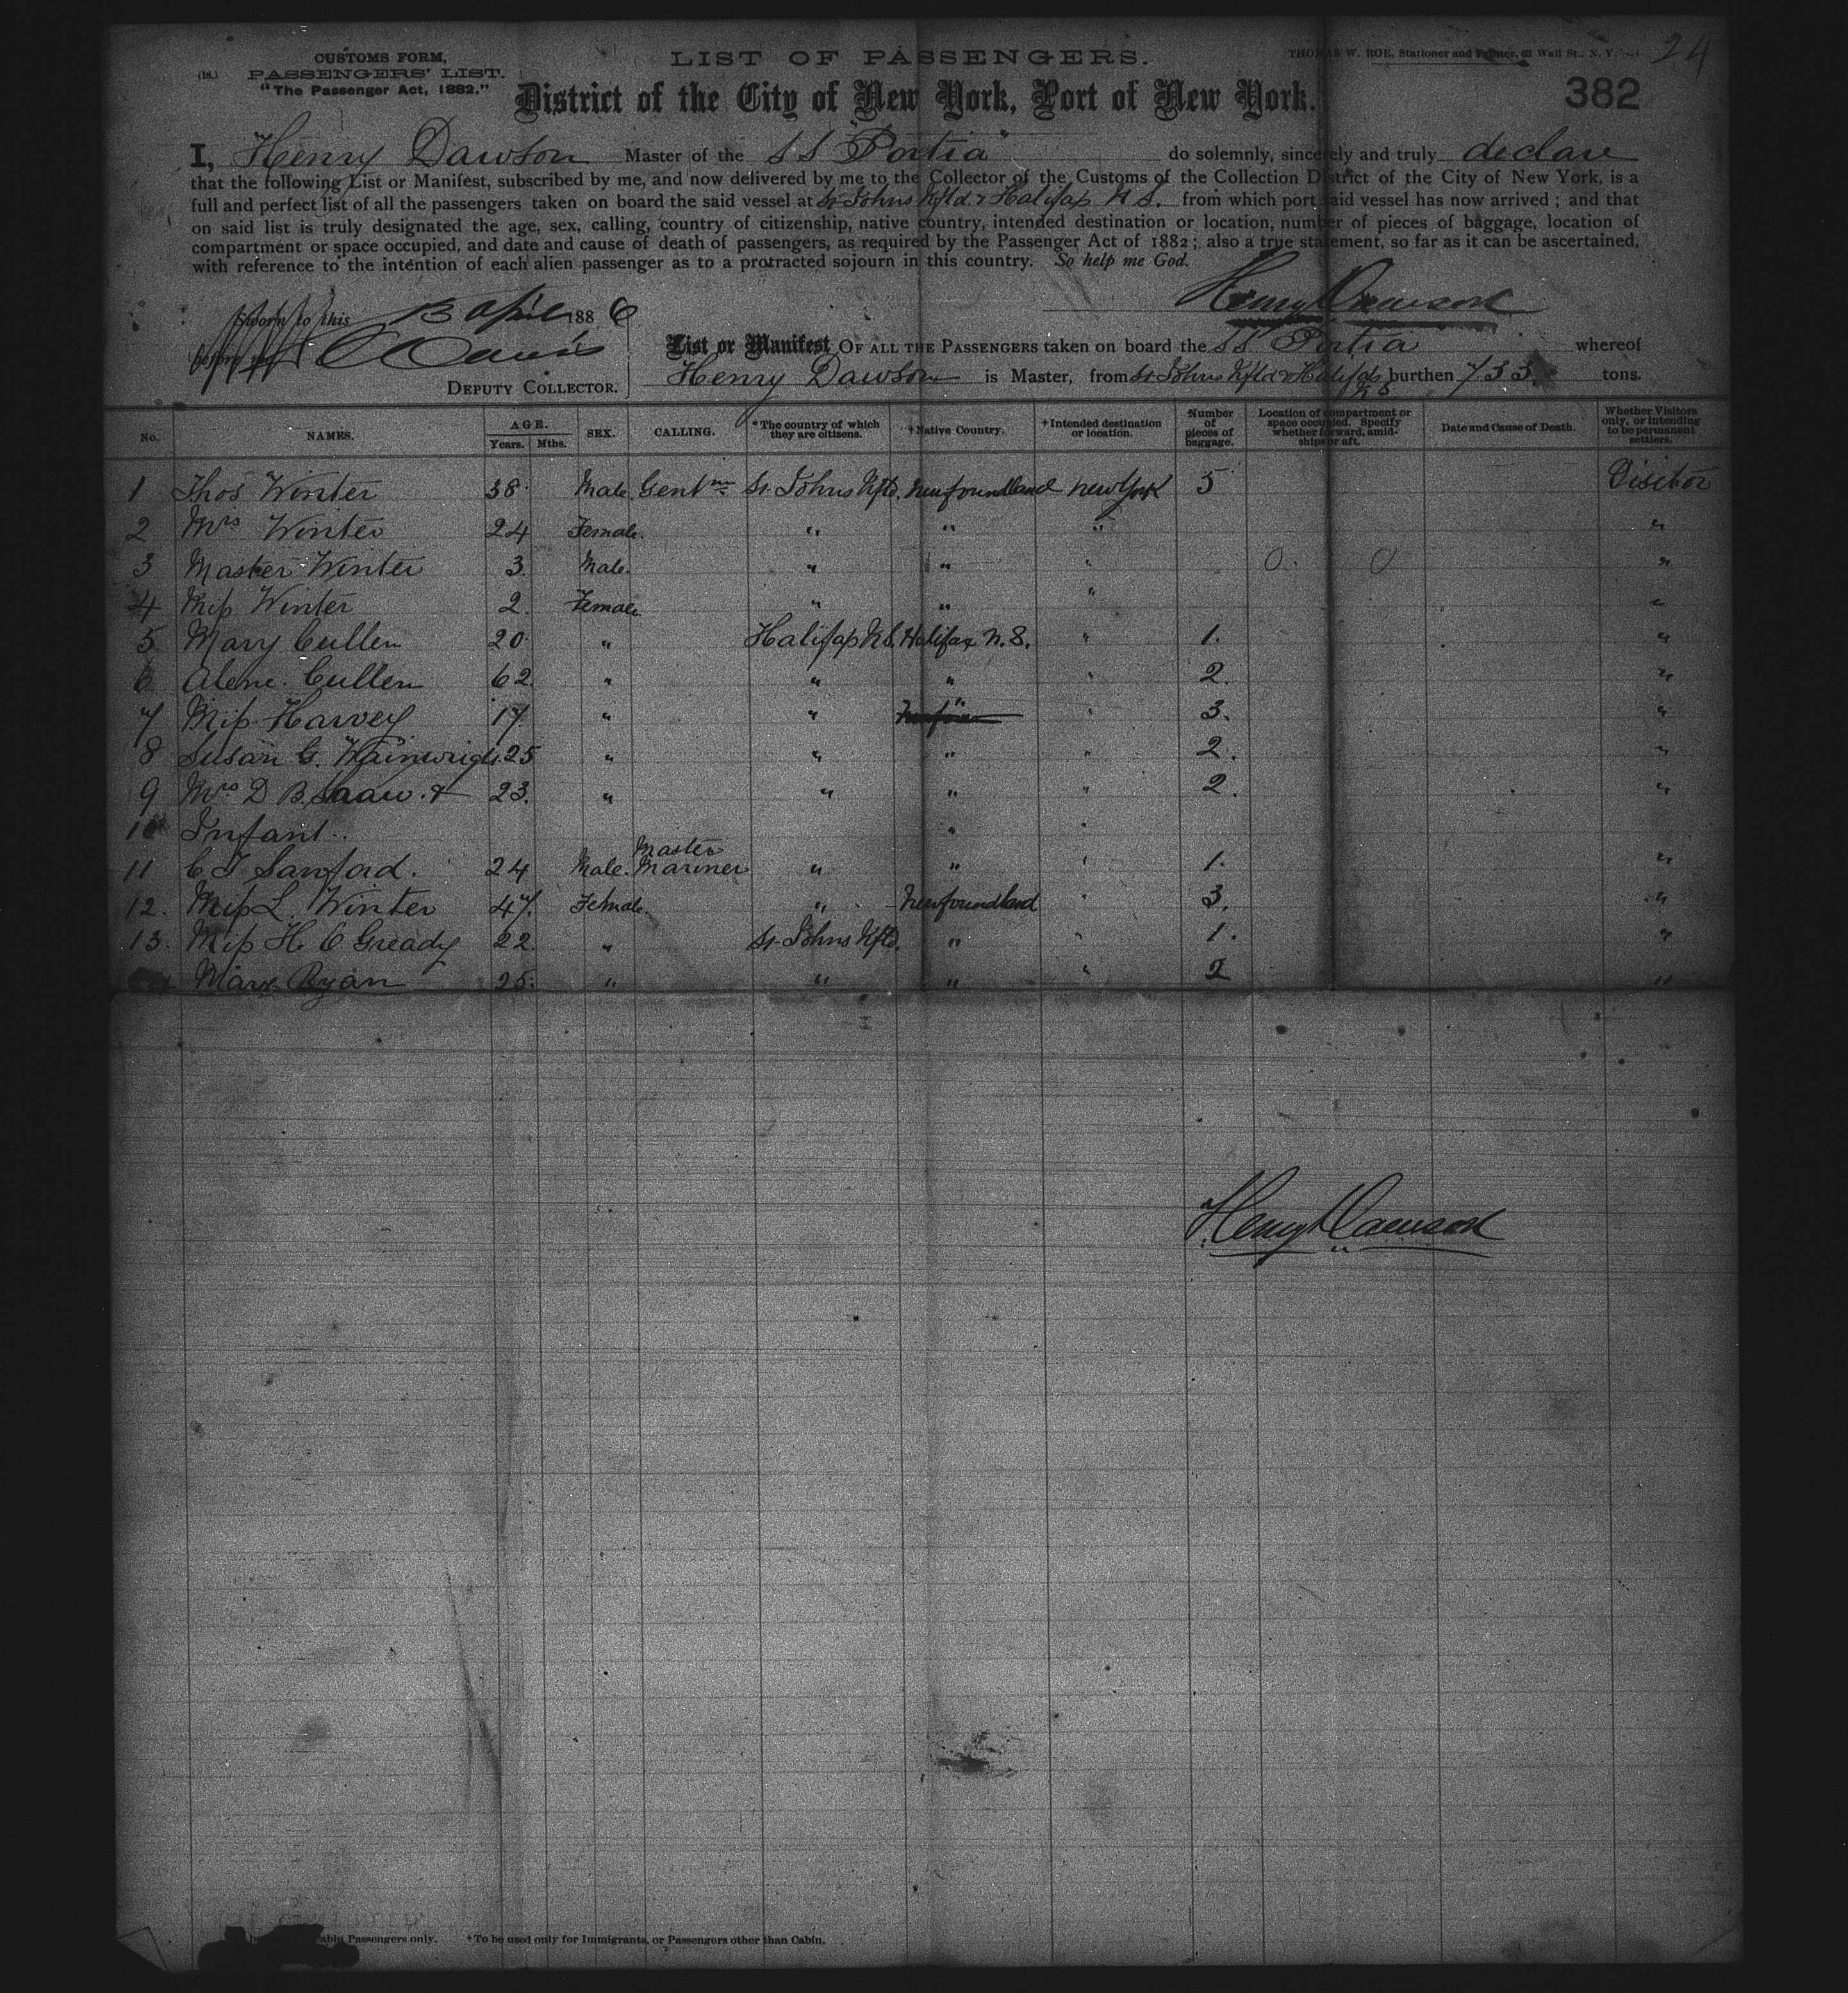 CUSTOMS FORM,
(18.) PASSENGERS' LIST.
"The Passenger Act, 1882."
LIST OF PASSENGERS.
THOMAS W. ROE, Stationer and Printer, Wall St., N. Y.
24
382
District of the City of New York, Port of New York.
I, Henry Dawson Master of the SS "Portia" do solemnly, sincerely and truly declare
that the following List or Manifest, subscribed by me, and now delivered by me to the Collector of the Customs of the Collection District of the City of New York, is a
full and perfect list of all the passengers taken on board the said vessel at St Johns Nfld & Halifax N S. from which port said vessel has now arrived; and that
on said list is truly designated the age, sex, calling, country of citizenship, native country, intended destination or location, number of pieces of baggage, location of
compartment or space occupied, and date and cause of death of passengers, as required by the Passenger Act of 1882; also a true statement, so far as it can be ascertained,
with reference to the intention of each alien passenger as to a protracted sojourn in this country. So help me God.
Henry Dawson
Sworn to this 13 April 1886
before me
DEPUTY COLLECTOR.
List or Manifest OF ALL THE PASSENGERS taken on board the SS Portia whereof
Henry Dawson is Master, from St Johns Nfld & Halifax NS burthen 733 tons.
No. NAMES. AGE. Years. Mths. SEX. CALLING. *The country of which they are citizens. †Native Country. †Intended destination or location. Number of pieces of baggage. Location of compartment or space occupied. Specify whether forward, amidships or aft. Date and Cause of Death. Whether Visitors only, or intending to be permanent settlers.
1 Thos Winter 38 Male. Gentmn St Johns Nfld. Newfoundland New York 5 Visitor
2 Mrs Winter 24 Female. " " " "
3 Master Winter 3 Male. " " " 0 0 "
4 Miss Winter 2. Female " " " "
5 Mary Cullen 20 " Halifax NS. Halifax N.S. " 1. "
6 Cullen 62 " " " " 2. "
7 Miss Harvey 17. " " " " 3. "
8 Susan G. Wainwright 25 " " " " 2. "
9 Mrs D B & 23. " " " " 2. "
10 Infant.. " "
11 C Sanford. 24 Male. Master Mariner " " " 1. "
12. Miss L. Winter 47. Female. " Newfoundland " 3. "
13. Miss H C Gready 22. " St Johns Nfld. " " 1. "
Mary Ryan 25. " " " " 2 "
Henry Dawson
Passengers only. †To be used only for Immigrants, or Passengers other than Cabin.